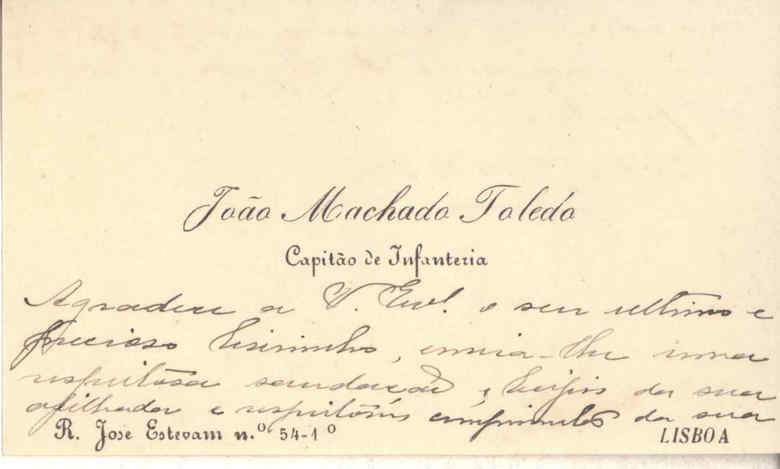 João Machado Toledo
Capitão de Infanteria
Agradece a V. Exª. o seu ultimo e
precioso livrinho, envia-lhe uma
respeitosa saudação, beijos da sua
afilhada e respeitosos cumprimentos da sua
R. José Estevam n.º 54-1º
LISBOA